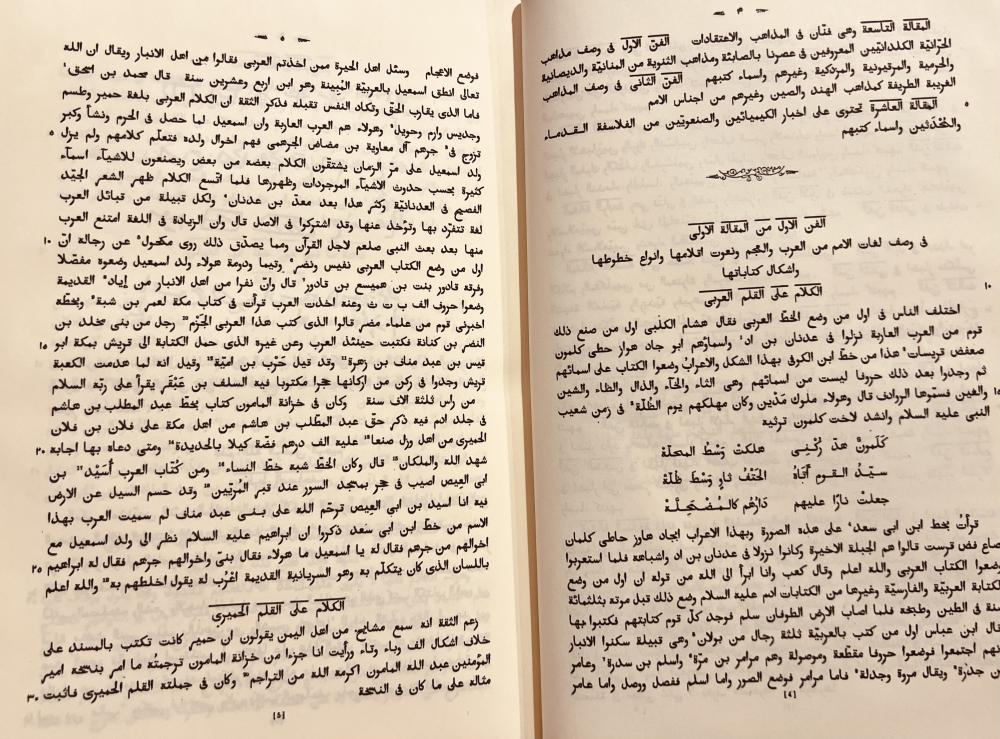 ۴
المقالة التاسعة وهى فنّان فى المذاهب والاعتقادات الفنّ الاوّل فى وصف مذاهب
الحرّانيّة الكلدانيّين المعروفين فى عصرنا بالصابئة ومذاهب الثنوية من المنانيّة والديصانية
والخرمية والمرقيونية والمزدكية وغيرهم واسماء كتبهم الفنّ الثانى فى وصف المذاهب
الغريبة الطريفة كمذاهب الهند والصين وغيرهم من اجناس الامم
المقالة العاشرة تحتوى على اخبار الكيميائيين والصنعويّين من الفلاسفة القدماء ٥
والمحْدَثين واسماء كتبهم
الفن الاول من المقالة الاولى
فى وصف لغات الامم من العرب والعجم ونعوت اقلامها وانواع خطوطها
واشكال كتاباتها
الكلام على القلم العربى ١٠
اختلف الناس فى اول من وضع الخطّ العربى فقال هشام الكلبى اول من صنع ذلك
قوم من العرب العاربة نزلوا فى عدنان بن اد واسماؤهم ابو جاد هواز حطى كلمون
صعفض قريسات هذا من خطّ ابن الكوفى بهذا الشكل والاعراب وضعوا الكتاب على اسمائهم
ثم وجدوا بعد ذلك حروفا ليست من اسمائهم وهى الثاء والخآء والذال والظاء والشين
والغين فسمّوها الروادف قال وهولاء ملوك مَدْين وكان مهلكهم يوم الظُلّة فى زمن شعيب ١٥
النبى عليه السلام وانشد لاخت كلمون ترثيه
كَلَمونُ هدّ رُكْنى هلكتُ وَسْطَ المحلّة
سيّدُ القوم أتاهُ الحَتْفُ ثاوٍ وَسْطَ ظُلّة
جعلتْ نارًا عليهم دَارُهم كالمُضْمَحِلَّة
قرأت بخط ابن ابى سعد على هذه الصورة وبهذا الاعراب ابجاد هاوز حاطى كلمان
صاع فض قرست قالوا هم الجبلة الاخيرة وكانوا نزولا فى عدنان بن اد واشباهه فلما استعربوا
وضعوا الكتاب العربى والله اعلم وقال كعب وانا ابرأ الى الله من قوله ان اول من وضع
الكتابة العربيّة والفارسيّة وغيرها من الكتابات ادم عليه السلام وضع ذلك قبل موته بثلثمائة
سنة فى الطين وطبخه فلما اصاب الارض الطوفان سلم فوجد كلّ قوم كتابتهم فكتبوا بها
قال ابن عباس اول من كتب بالعربيّة ثلثة رجال من بولان وهى قبيلة سكنوا الانبار
انهم اجتمعوا فوضعوا حروفا مقطّعة وموصولة وهم مرامر بن مرّة واسلم بن سدرة وعامر
بن جدرة ويقال مروة وجدلة فاما مرامر فوضع الصور واما اسلم ففصل ووصل واما عامر
[4]
٥
فوضع الاعجام وسئل اهل الحيرة ممن اخذتم العربى فقالوا من اهل الانبار ويقال ان الله
تعالى انطق اسمعيل بالعربيّة المُبينة وهو ابن اربع وعشرين سنة قال محمد بن اسحق
فاما الذى يقارب الحق وتكاد النفس تقبله فذكر الثقة ان الكلام العربى بلغة حمير وطسم
وجديس وارم وحويل وهولاء هم العرب العاربة وان اسمعيل لما حصل فى الحرم ونشأ وكبر
تزوج فى جرهم آل معاوية بن مضاض الجرهمى فهم اخوال ولده فتعلّم كلامهم ولم يزل ٥
ولد اسمعيل على مرّ الزمان يشتقّون الكلام بعضه من بعض ويصنعون للاشيآء اسمآء
كثيرة بحسب حدوث الاشيآء الموجودات وظهورها فلما اتّسع الكلام ظهر الشعر الجيّد
الفصيح فى العدنانيّة وكثر هذا بعد معدّ بن عدنان ولكل قبيلة من قبائل العرب
لغة تتفرّد بها وتؤخذ عنها وقد اشتركوا فى الاصل قال وان الزيادة فى اللغة امتنع العرب
منها بعد بعث النبى صلعم لاجل القرآن ومما يصدّق ذلك روى مكحول عن رجالة انّ ١٠
اول من وضع الكتاب العربى نفيس ونضر وتيما ودومة هولاء ولد اسمعيل وضعوه مفصّلا
وفرقه قادور بنت بن هميسع بن قادور قال وانّ نفرا من اهل الانبار من إياد القديمة
وضعوا حروف الف ب ت ث وعنه اخذت العرب قرأت فى كتاب مكة لعمر بن شبة وبخطّه
اخبرنى قوم من علماء مضر قالوا الذى كتب هذا العربى الجَزْم رجل من بنى مخلد بن
النضر بن كنانة فكتبت حينئذ العرب وعن غيره الذى حمل الكتابة الى قريش بمكة ابو ١٥
قيس بن عبد مناف بن زهرة وقد قيل حَرْب بن اميّة وقيل انه لما هدمت الكعبة
قريش وجدوا فى ركن من اركانها حجرا مكتوبا فيه السلف بن عَبْقَر يقرأ على ربّه السلام
من راس ثلثة الاف سنة وكان فى خزانة المامون كتاب بخطّ عبد المطلب بن هاشم
فى جلد ادم فيه ذكر حق عبد المطلب بن هاشم من اهل مكة على فلان بن فلان
الحميرى من اهل وزل صنعا عليه الف درهم فضّة كيلا بالحديدة ومتى دعاه بها اجابة ٢٠
شهد الله والملكان قال وكان الخطّ شبة خطّ النساء ومن كُتّاب العرب أَسَيْد بن
ابى العِيص اصيب فى حجر بمسجد السور عند قبر المُريّين وقد حسم السيل عن الارض
فيه انا اسيد بن ابى العيص ترحّم الله على بنى عبد مناف لم سميت العرب بهذا
الاسم من خطّ ابن ابى سعد ذكروا ان ابراهيم عليه السلام نظر الى ولد اسمعيل مع
اخوالهم من جرهم فقال له يا اسمعيل ما هولاء فقال بنىّ واخوالهم جرهم فقال له ابراهيم ٢٥
باللسان الذى كان يتكلّم به وهو السريانية القديمة اعْرُب له يقول اخلطهم به والله اعلم
الكلام على القلم الحميرى
زعم الثقة انه سمع مشايخ من اهل اليمن يقولون ان حمير كانت تكتب بالمسند على
خلاف اشكال الف وباء وتاء ورأيت انا جزءا من خزانة المامون ترجمتُه ما امر بنسخة امير
المؤمنين عبد الله المامون اكرمة الله من التراجم وكان فى جملتة القلم الحميرى فاثبت
مثاله على ما كان فى النسخة ٣٠
[5]